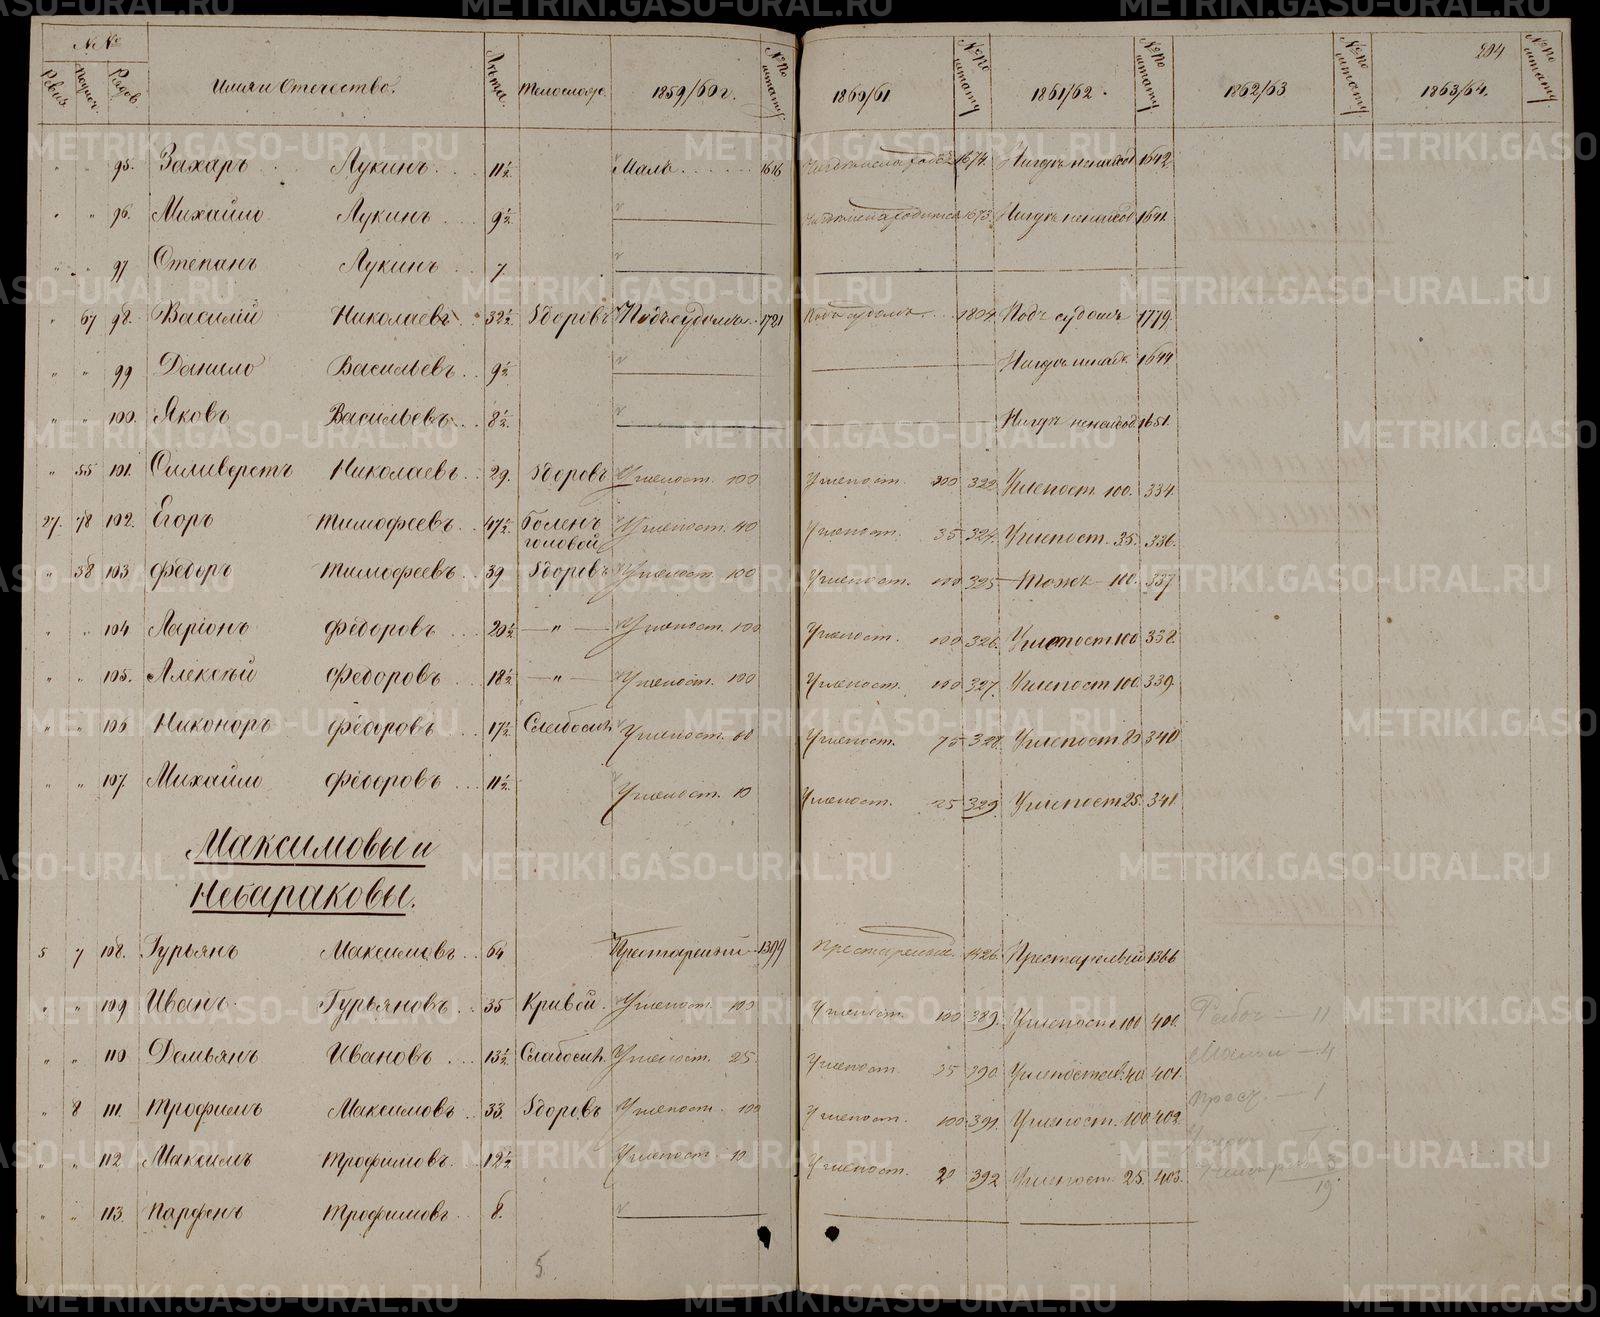 №№
Ревиз. Поряд. Рядов. Имя и Отчество. Лѣта. Телослож. 1859/60 г. №№ по штату 1860/61 №№ по штату 1861/62. №№ по штату 1862/63 №№ по штату 204 1863/64. №№ по штату
" " 95. Захаръ Лукинъ 11½ Малъ 1616 1674. 1642.
" " 96. Михайло Лукинъ 9½ " 1673. 1641.
" " 97 Степанъ Лукинъ 7 "
" 67 98. Василій Николаевъ 32½ Здоровъ Подъ судомъ 1721 Подъ судомъ 1804. Подъ судомъ 1779.
" " 99 Данило Васильевъ 9½ " 1644
" " 100. Яковъ Васильевъ 8½ " 1651.
" 55 101. Силиверстъ Николаевъ 29. Здоровъ Углепост. 100 Углепост. 100 322. Углепост. 100. 334.
27. 78 102. Егоръ Тимофеевъ 47½ Боленъ головой Углепост. 40 Углепост. 35 324. Углепост. 35. 336.
" 38 103 Федоръ Тимофеевъ 39 Здоровъ Углепост. 100 Углепост. 100 325 Тожъ 100. 337.
" " 104 Ларіонъ Федоровъ 20½ — " — Углепост. 100 Углепост. 100 326. Углепост 100 338.
" " 105. Алексѣй Федоровъ 18½ — " — Углепост. 100 Углепост. 100 327. Углепост 100. 339.
" " 106 Никоноръ Федоровъ 17½ Слабосил. Углепост. 60 Углепост. 75 328. Углепост 80 340
" " 107. Михайло Федоровъ 11½ Углепост. 10 Углепост. 25 329. Углепост 25. 341.
Максимовы и
Небараковы.
5 7 108. Гурьянъ Максимовъ 64 Престарелый 1399 Престарелый 1426. Престарелый 1366
" " 109 Иванъ Гурьяновъ 35 Кривой. Углепост. 100 Углепост. 100 389. Углепост. 100 400. Работ — 11
" " 110 Демьянъ Ивановъ 13½ Слабосил. Углепост. 25 Углепост. 35 390. Углепостав. 40 401. Малол — 4
" 8 111. Трофимъ Максимовъ 33. Здоровъ Углепост. 100 Углепост. 100. 391. Углепост. 100 402. Прест. — 1
" " 112 Максимъ Трофимовъ 12½ Углепост. 10 Углепост. 20 392 Углепост. 25. 403. 19.
" " 113. Парфенъ Трофимовъ 8. "
5
METRIKI.GASO-URAL.RU